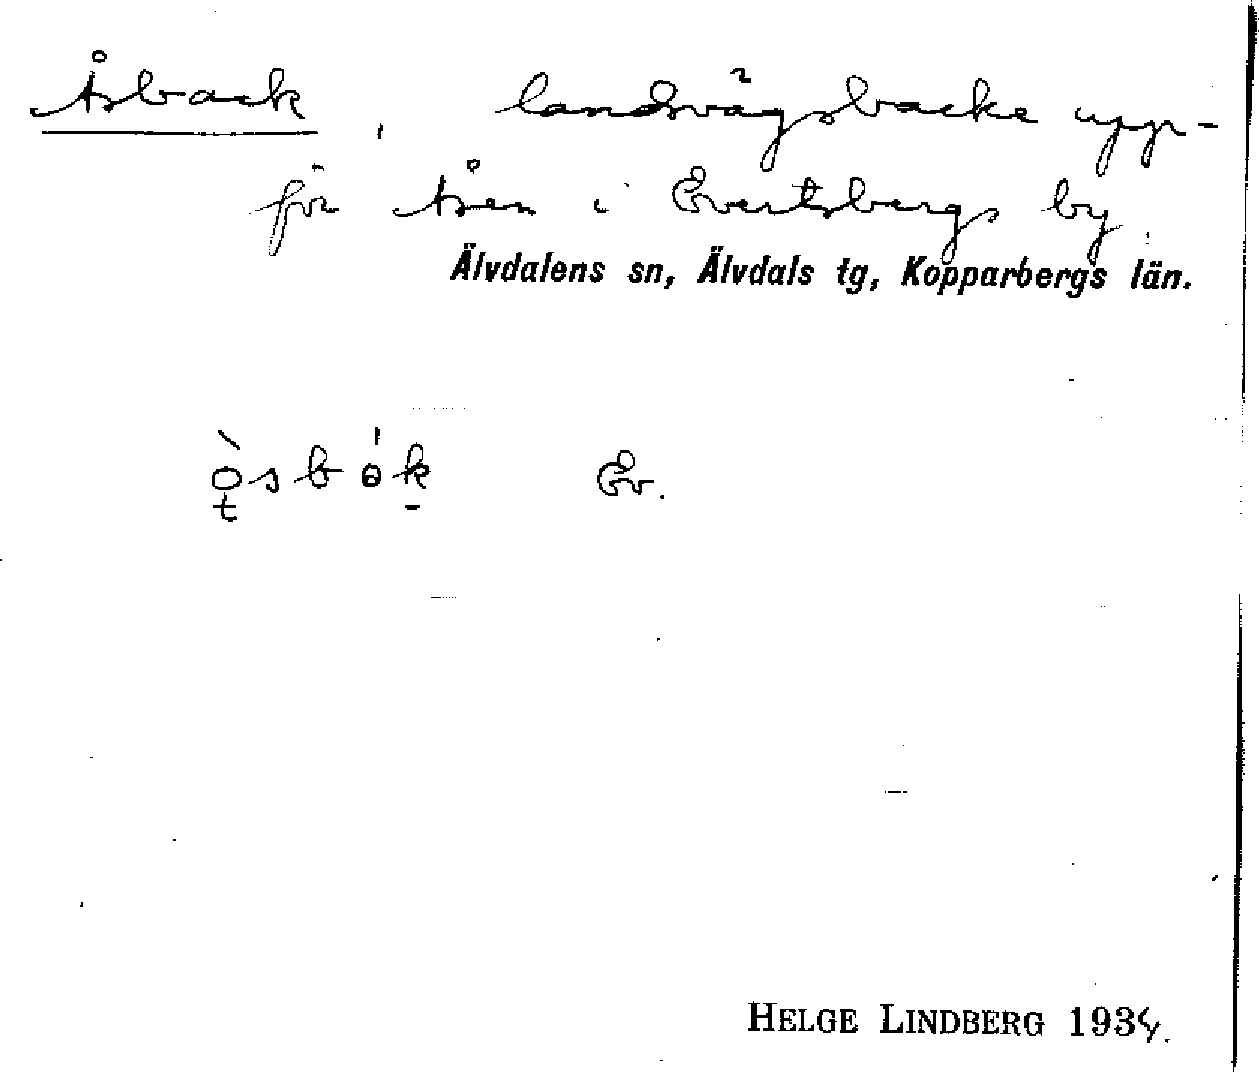 Åsback, landsvägsbacke upp-
för Åsen i Evertsbergs by.
Älvdalens sn, Älvdals tg, Kopparbergs län.
ò̖sbɵ́k Ev.
HELGE LINDBERG 1934.